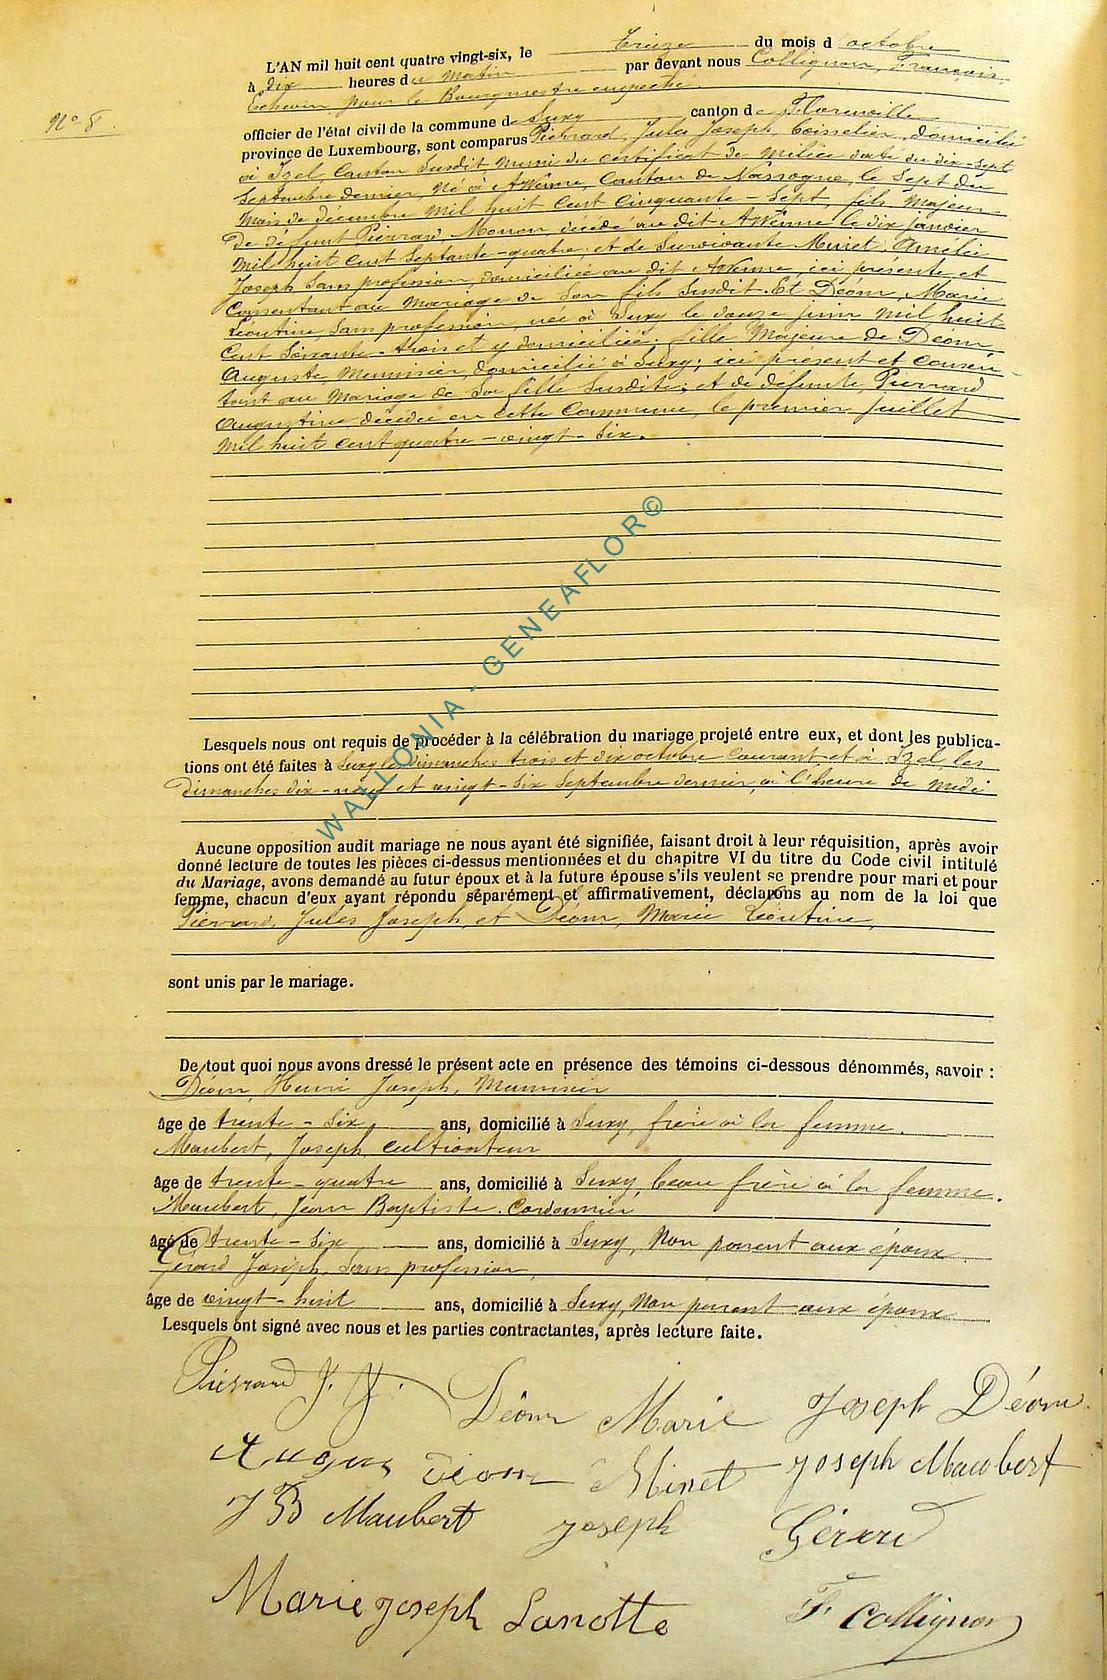 N° 8.
L'AN mil huit cent quatre vingt-six, le treize du mois d'octobre
à dix heures du matin par devant nous Collignon, François,
Echevin pour le Bourgmestre empêché
officier de l'état civil de la commune de Suxy canton de Florenville
province de Luxembourg, sont comparus Pierrard, Jules Joseph, domicilié
à Izel Canton Susdit muni du certificat de milice daté du dix-sept
Septembre dernier, né à Awenne, Canton de Nassogne, le Sept du
Mois de décembre mil huit cent cinquante-Sept, fils Majeur
De défunt Pierrard, Monon décédé au dit Awenne le dix janvier
mil huit cent Septante-quatre, et de Survivante Minet, Amélie
Joseph Sans profession, domiciliée au dit Awenne, ici présente et
Consentant au Mariage de Son fils Susdit. Et Déom, Marie
Léontine, Sans profession, née à Suxy le douze juin mil huit
Cent Soixante-trois et y domiciliée; fille Majeure de Déom
Auguste, Meunisier, domicilié à Suxy; ici présent et consen-
tant au Mariage de Sa fille Susdite; et de défunte, Pierrard
Augustine décédée en cette Commune, le premier Juillet
mil huit cent quatre-vingt-Six.
Lesquels nous ont requis de procéder à la célébration du mariage projeté entre eux, et dont les publica-
tions ont été faites à Suxy les dimanches trois et dix octobre courant et à Izel les
Dimanches dix-neuf et vingt-six Septembre dernier, à l'heure de midi
Aucune opposition audit mariage ne nous ayant été signifiée, faisant droit à leur réquisition, après avoir
donné lecture de toutes les pièces ci-dessus mentionnées et du chapitre VI du titre du Code civil intitulé
du Mariage, avons demandé au futur époux et à la future épouse s'ils veulent se prendre pour mari et pour
femme, chacun d'eux ayant répondu séparément et affirmativement, déclarons au nom de la loi que
Pierrard, Jules Joseph, et Déom, Marie Léontine,
sont unis par le mariage.
De tout quoi nous avons dressé le présent acte en présence des témoins ci-dessous dénommés, savoir :
Déom, Henri Joseph, Menuisier
âge de trente-six ans, domicilié à Suxy, frère à la femme.
Maubert, Joseph, cultivateur
âge de trente-quatre ans, domicilié à Suxy, beau frère à la femme.
Maubert, Jean Baptiste. Cordonnier
âgé de trente-six ans, domicilié à Suxy, Non parent aux époux
Gérard Joseph, Sans profession,
âge de vingt-huit ans, domicilié à Suxy, Non parent aux époux
Lesquels ont signé avec nous et les parties contractantes, après lecture faite.
Pierrard J. J. Déom Marie Joseph Déom
Déom Minet Joseph Maubert
J B Maubert Joseph Gérard
Marie Joseph Lanotte F. Collignon
WALLONIA - GENEAFLOR©